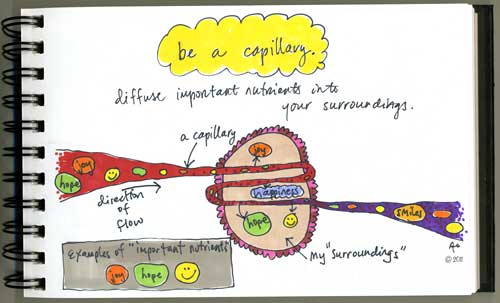 be a capillary.
diffuse important nutrients into
your surroundings.
a capillary
joy
hope
direction
of
flow
joy
happiness
hope
smiles
My "surroundings"
Examples of "important nutrients"
joy
hope
© 2011